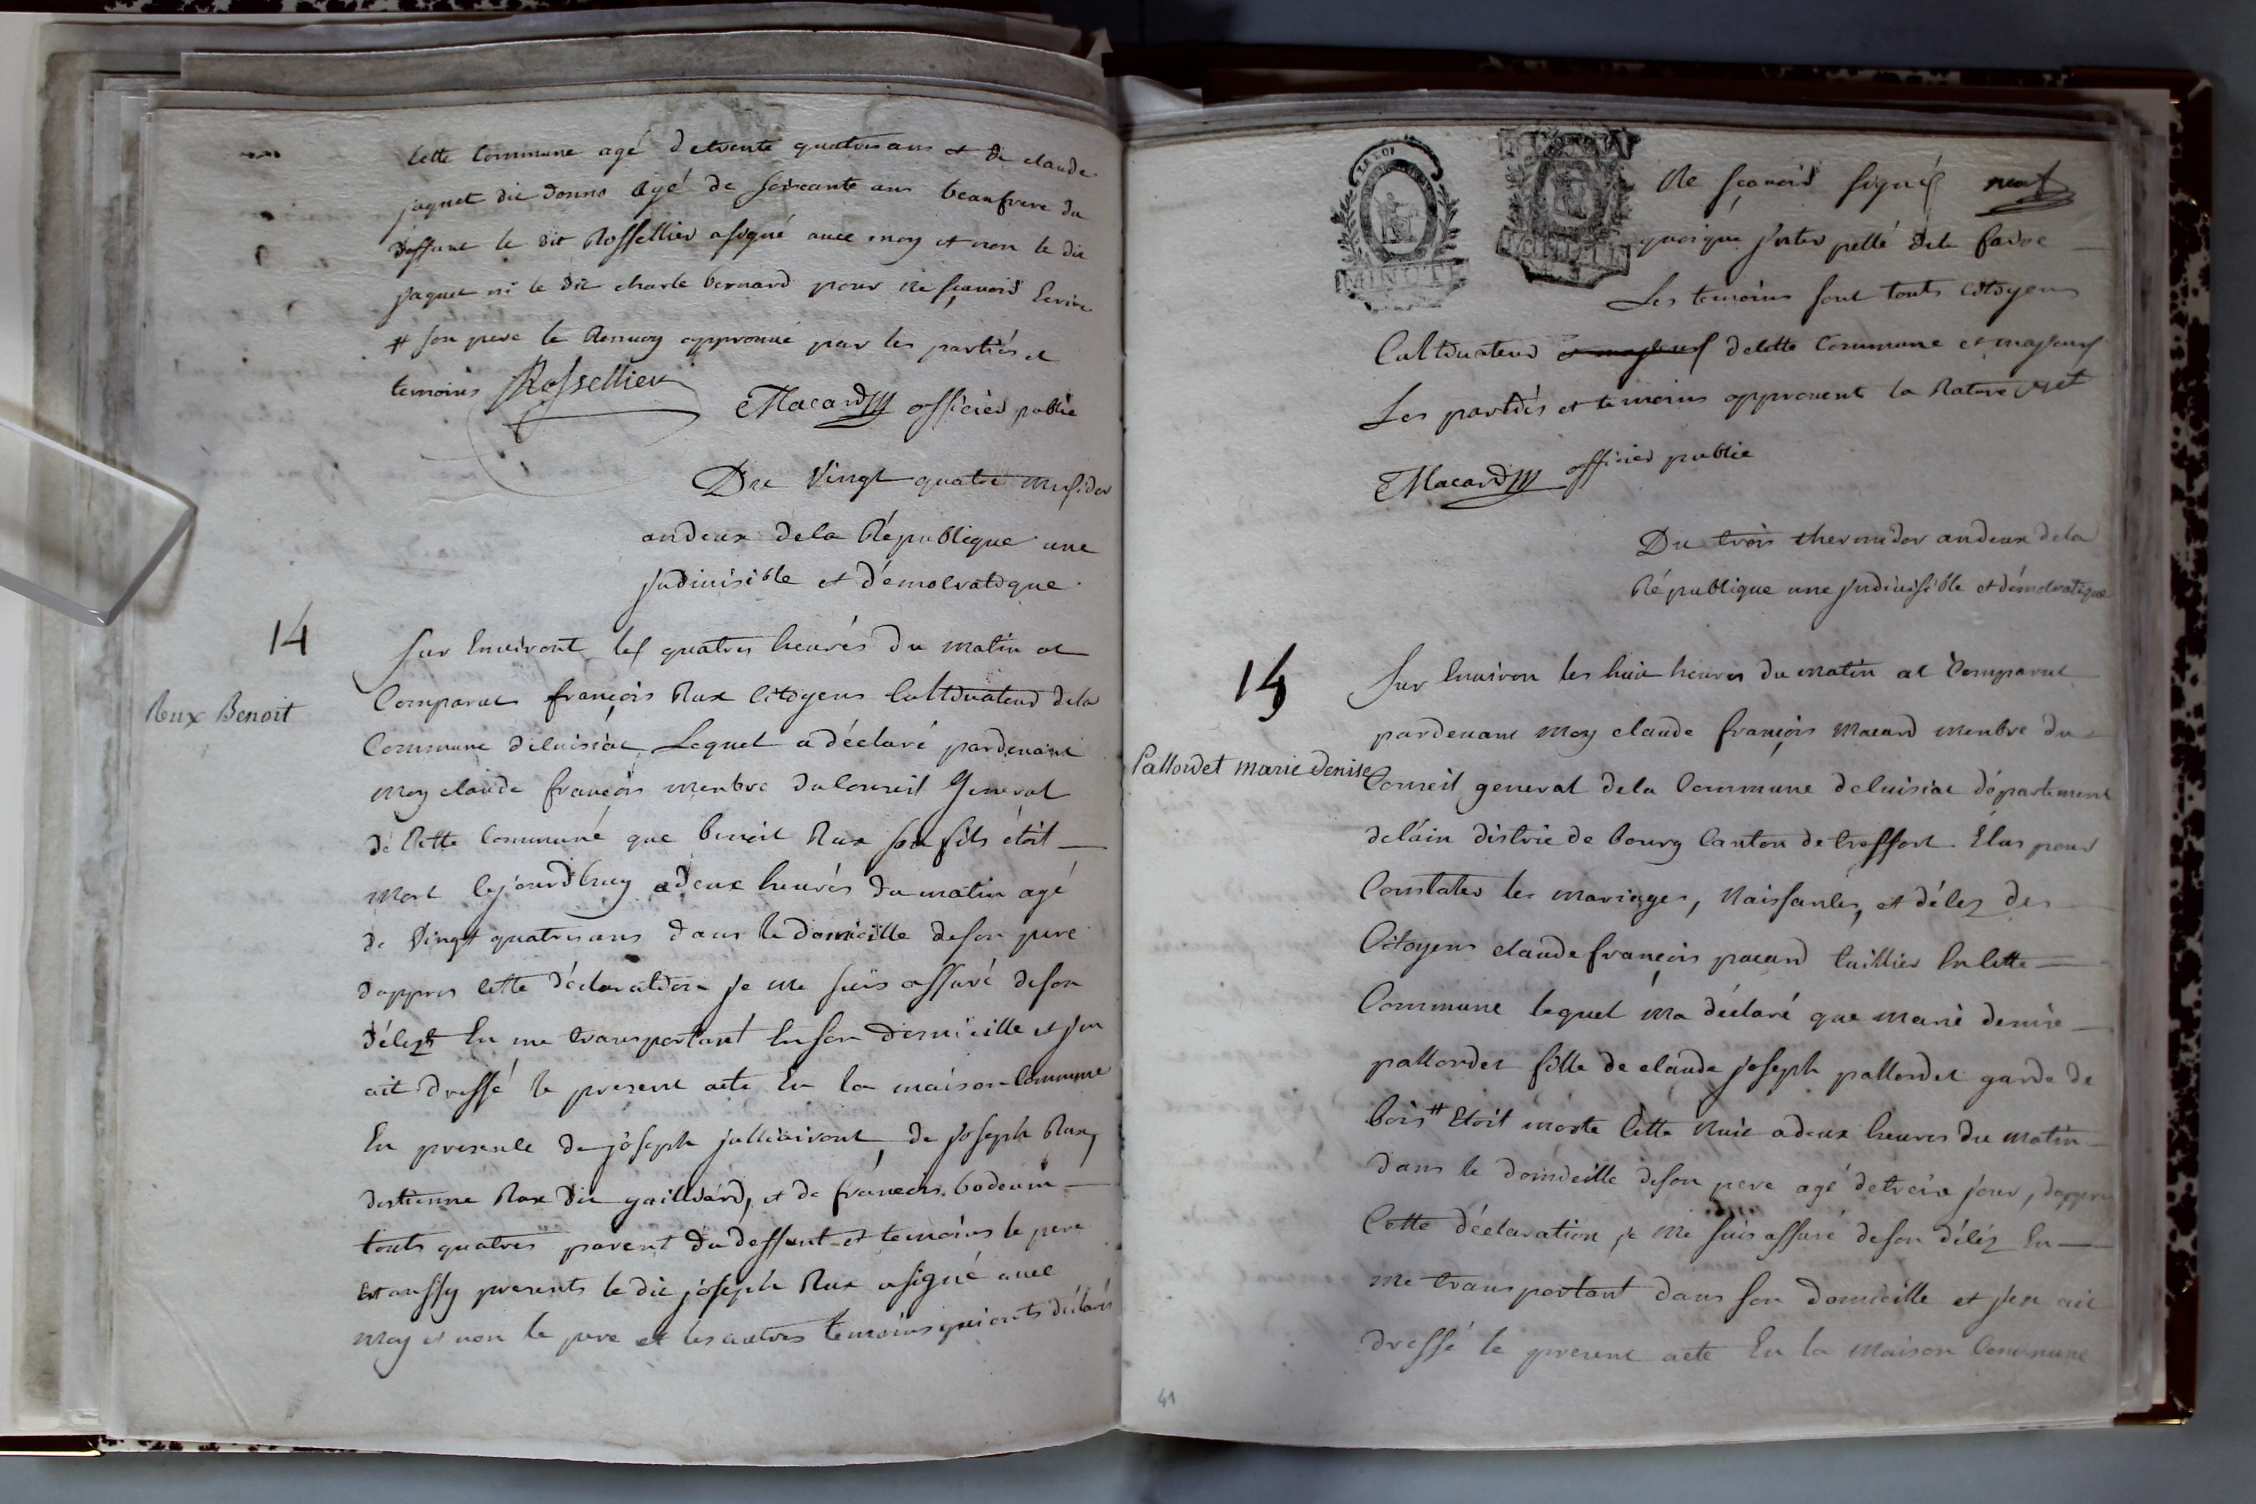 Cette Commune agé detrente quatres ans et de claude
jaquet dit donno agé de soixante ans beaufrere du
deffunt le dit Rossellier asigné avec moy et non le dit
jaquet ni le dit charle bernard pour ne sçavoir Ecrire
# son pere le Renvoy approuvé par les partiés et
temoins Rossellier
Macard officier public
Du Vingt quatre Messidor
andeux dela République une
jndivisible et démocratique
14
Sur Environt les quatres heurés du matin at
Reux Benoit
Comparut françois Rux Citoyens Cultivateur dela
Commune deluisiat Lequel adéclaré pardevant
moy claude françois menbre du Conseil General
de Cette Communé que benoit Rux son fils étoit
mort Cejourdhuy adeux heurés du matin agé
de Vingt quatres ans dans le domicille deson pere
dappres Cette déclaration je me suis assuré deson
décez En me transportant En son domicille et jen
ait dressé le present acte En la maison Commune
En presence de joseph de joseph Rux,
destienne Rux dit gailliard, et de françois
touts quatres parent du deffunt et temoins le pere
Et aussy presents le dit joseph Rux asigné avec
moy et non le pere et les autres temoins qui onts déclarés
LA LOI
MINUTE
Ne sçavoir signés
quoique jnter pellé dele faire
Les temoins sont touts Citoyens
Cultivateur et majeurs decette Commune et majeurs
Les partiés et temoins approuvent la Rature
Macard officier public
Du trois thermidor andeux dela
République une jndivisible et démocratique
15
Sur Environ les huit heures du matin at Comparut
pardevant moy claude françois Macard menbre du
Pallordet marie denise
Conseil general dela Commune deluisiat département
delain distric de bourg Canton de treffort Elus pour
Constater les mariages, Naissances, et décez des
Citoyens claude françois pacard taillier En Cette
Commune lequel ma déclaré que marie denise
pallordet fille de claude joseph pallordet garde de
bois # Etoit morte Cette Nuit adeux heures du matin
dans le domicille deson pere agé detreize jour, dappres
Cette déclaration je me suis assuré deson décéz En
me transportant dans son domicille et jen ait
dressé le present acte En la Maison Commune
41